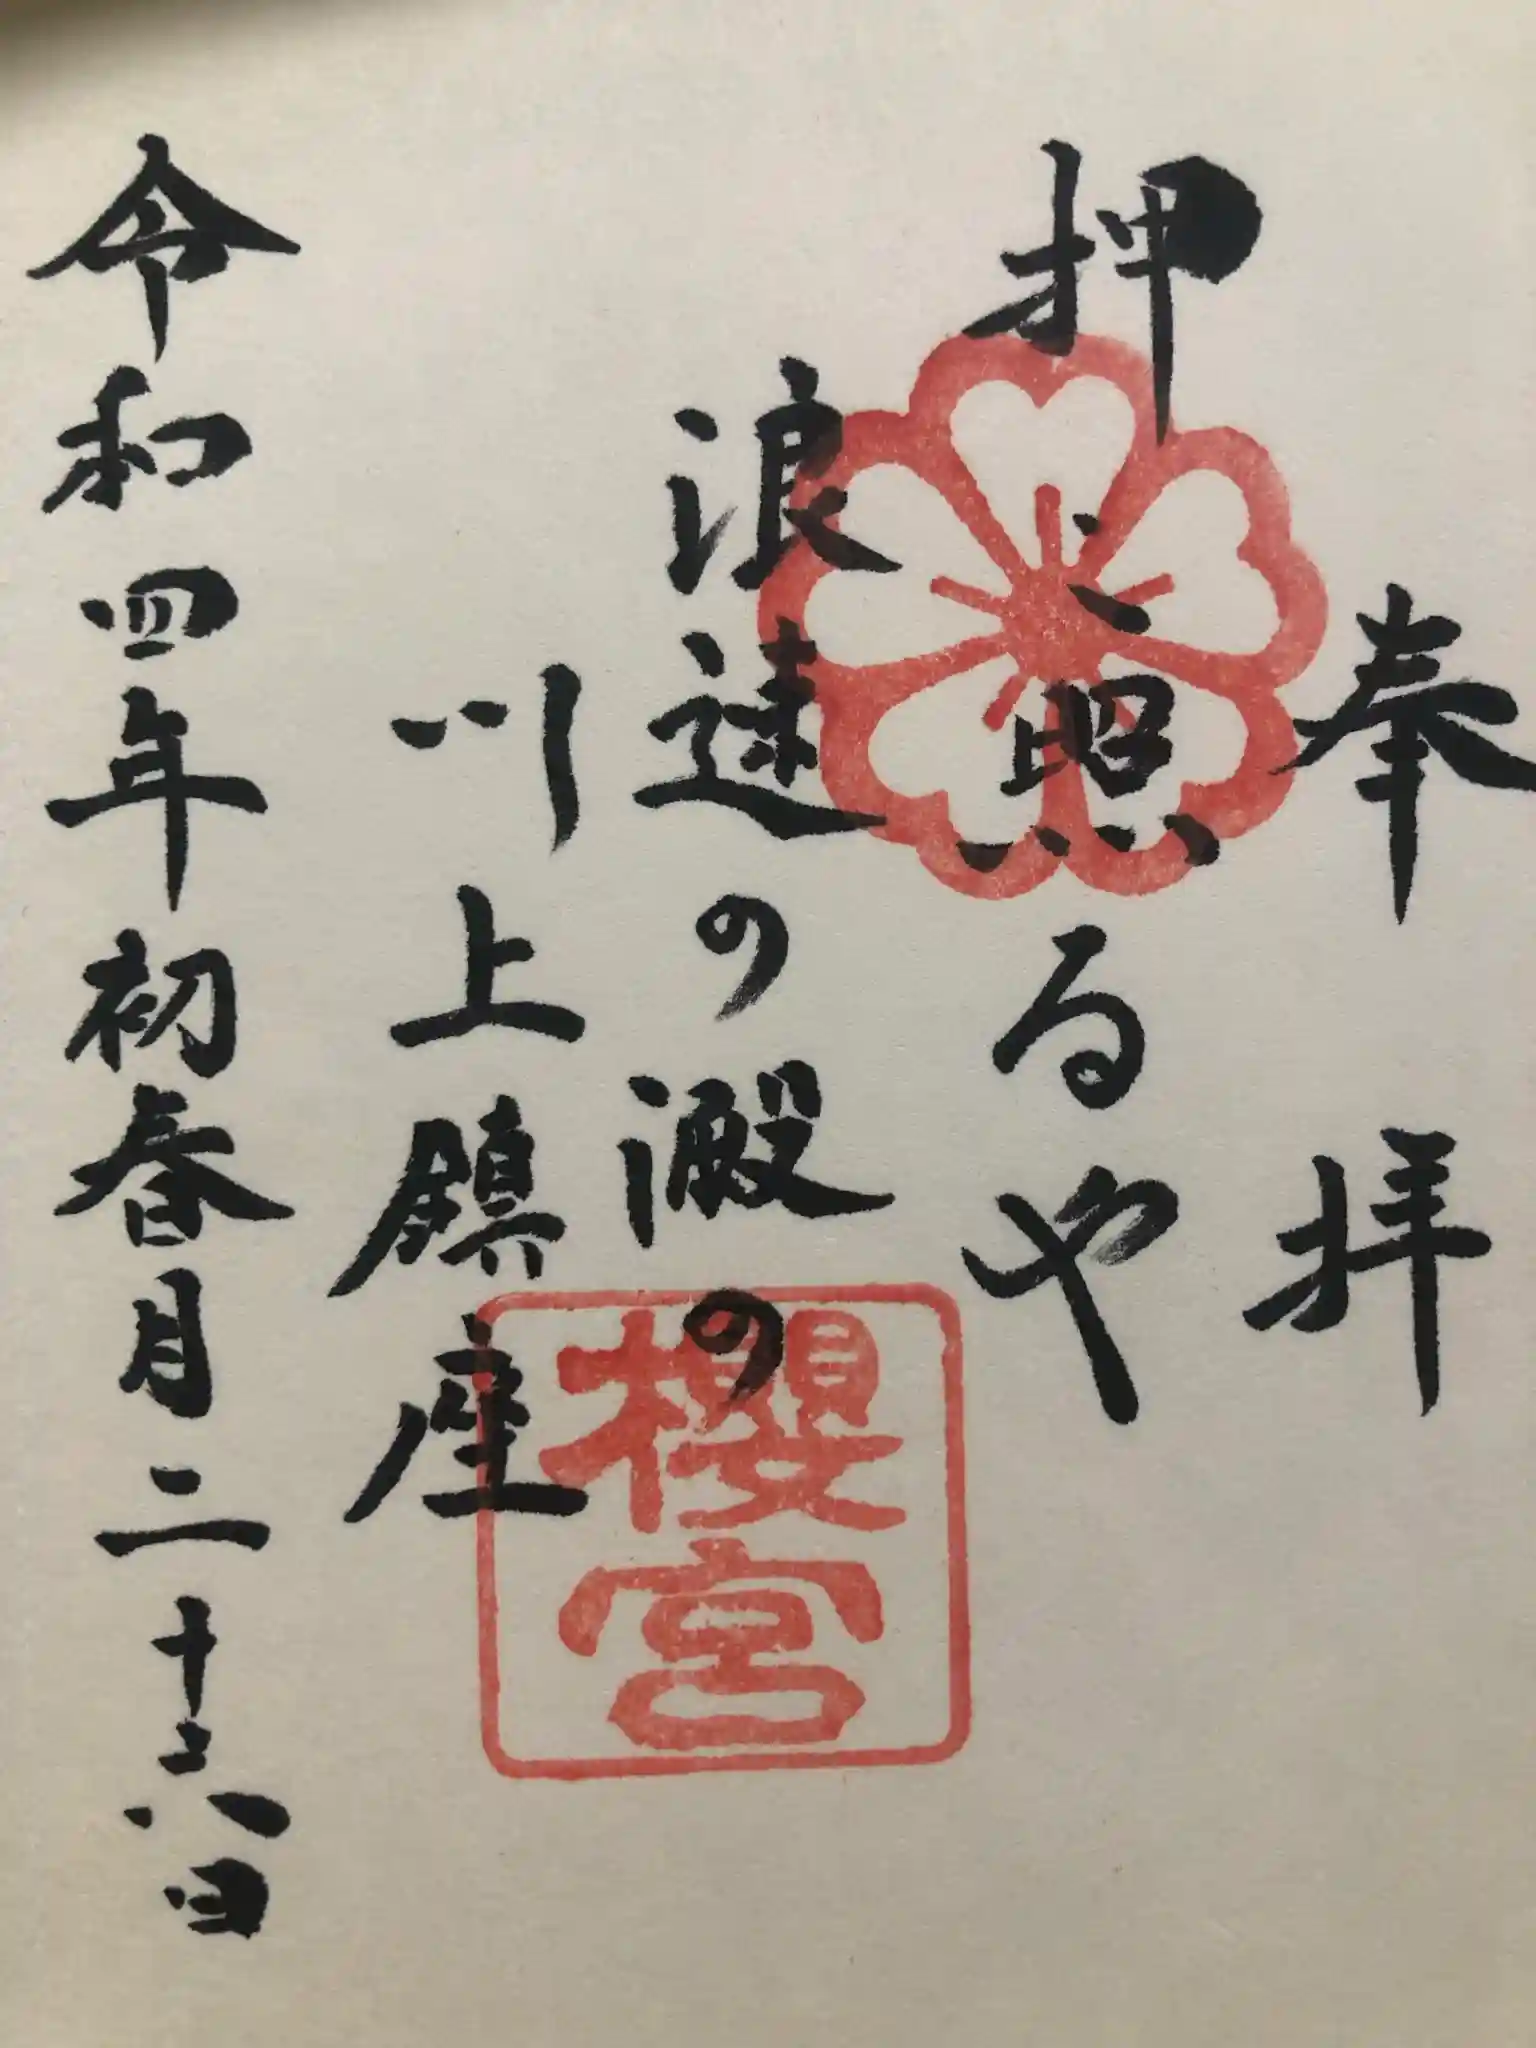 奉拝
押し照るや
浪速の澱の
川上鎮座
令和四年初春月二十六日
櫻宮